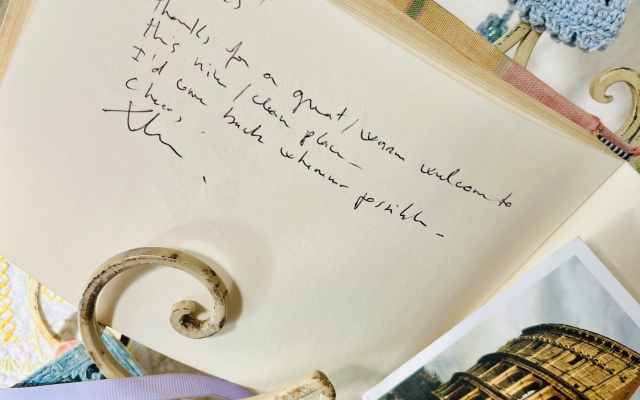 thanks for a great/warm welcome to
this nice/clean place_
I'd come back whenever possible_
Cheers,